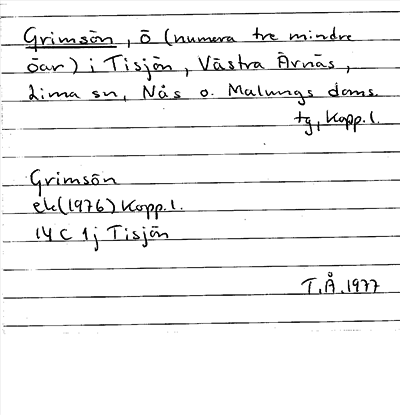 Grimsön, ö (numera tre mindre
öar) i Tisjön, Västra Ärnäs,
Lima sn, Nås o. Malungs doms.
tg, Kopp.l.
Grimsön
ek(1976) Kopp.l.
14C 1j Tisjön
T.Å.1977